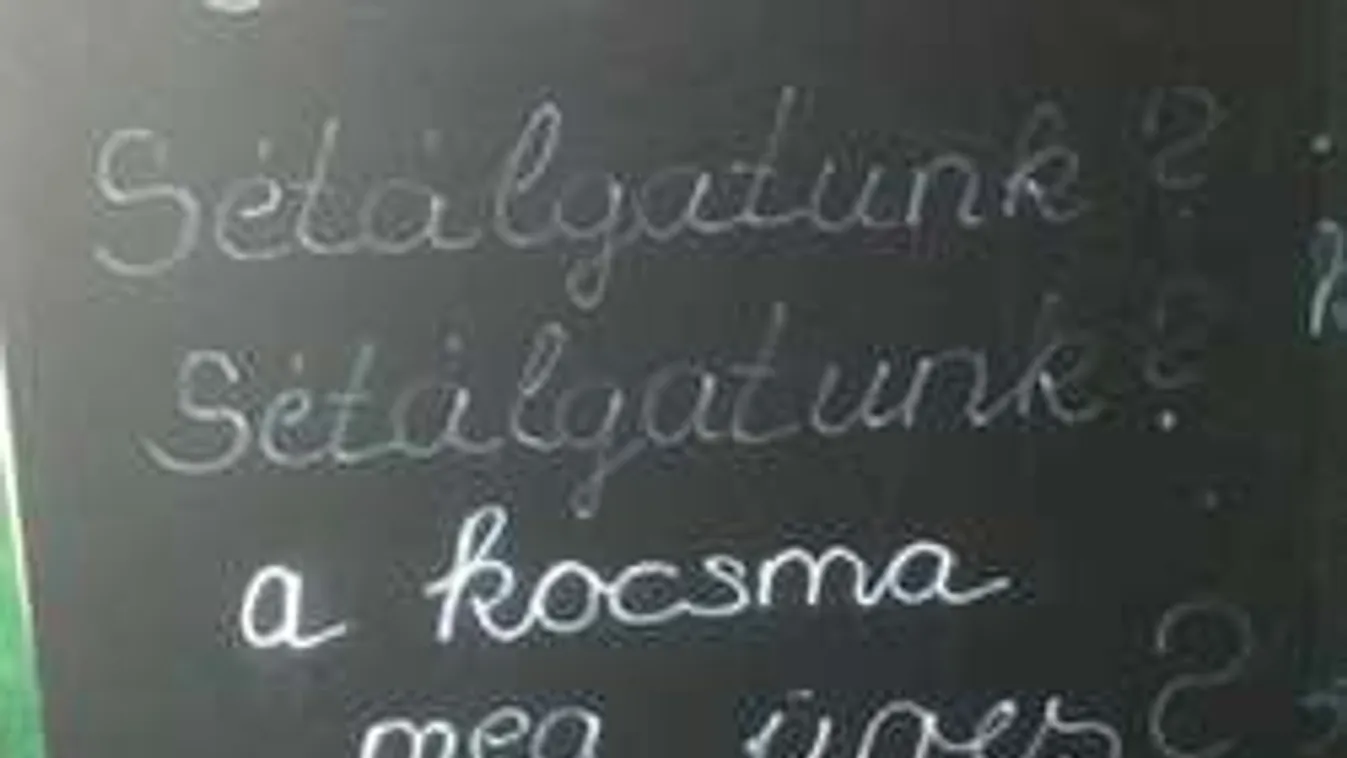 Sétálgatunk?
Sétálgatunk?
a kocsma
meg üres?